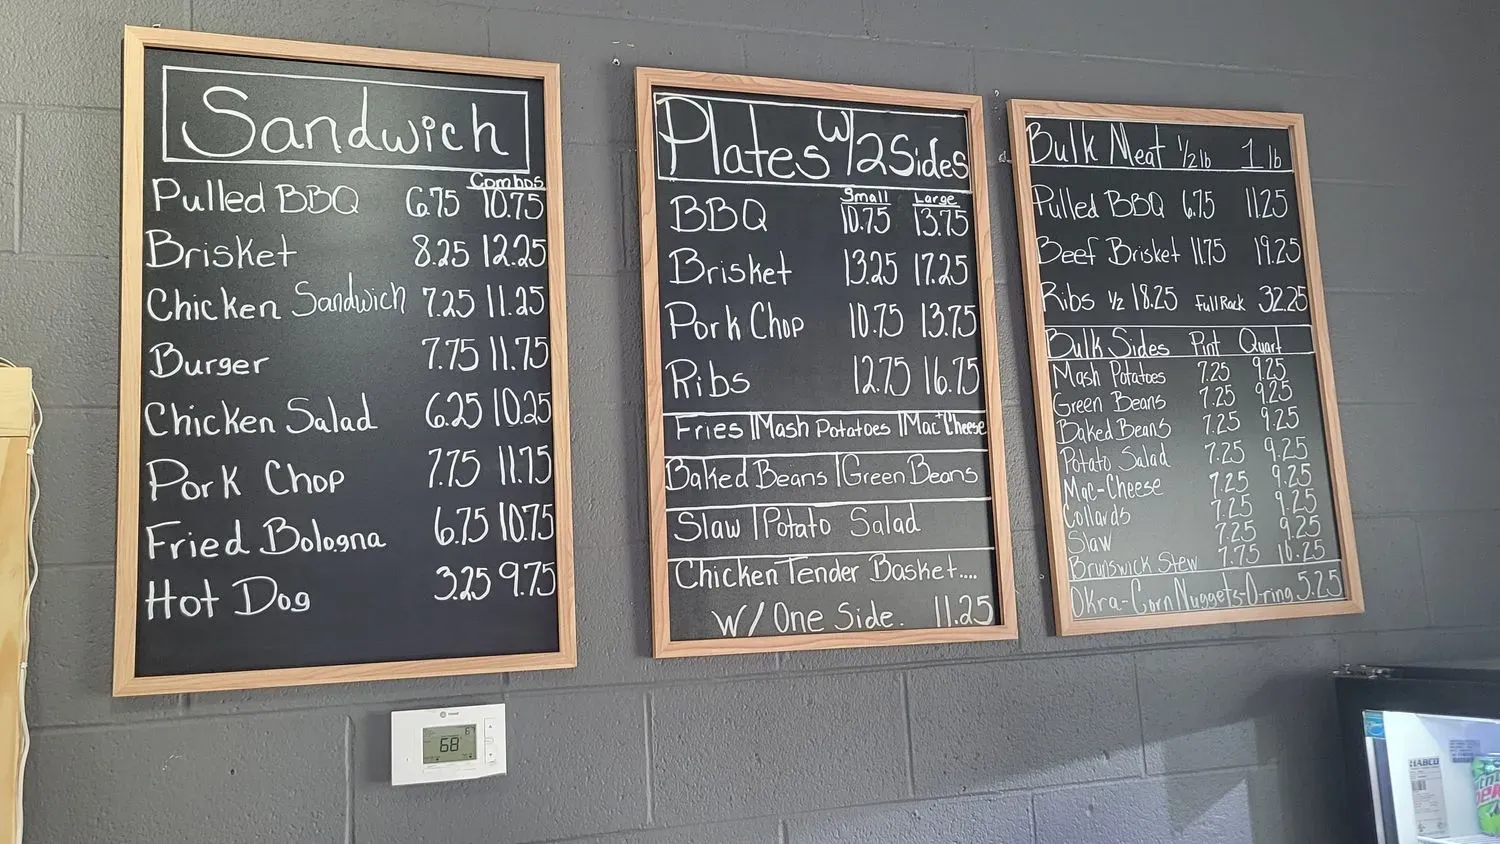 Sandwich
Combos
Pulled BBQ 6.75 10.75
Brisket 8.25 12.25
Chicken Sandwich 7.25 11.25
Burger 7.75 11.75
Chicken Salad 6.25 10.25
Pork Chop 7.75 11.75
Fried Bologna 6.75 10.75
Hot Dog 3.25 9.75
Plates W/2 Sides
Small Large
BBQ 10.75 13.75
Brisket 13.25 17.25
Pork Chop 10.75 13.75
Ribs 12.75 16.75
Fries | Mash Potatoes | Mac+Cheese
Baked Beans | Green Beans
Slaw | Potato Salad
Chicken Tender Basket....
W/ One Side. 11.25
Bulk Meat 1/2 lb 1 lb
Pulled BBQ 6.75 11.25
Beef Brisket 11.75 19.25
Ribs 1/2 18.25 Full Rack 32.25
Bulk Sides Pint Quart
Mash Potatoes 7.25 9.25
Green Beans 7.25 9.25
Baked Beans 7.25 9.25
Potato Salad 7.25 9.25
Mac-Cheese 7.25 9.25
Collards 7.25 9.25
Slaw 7.25 9.25
Brunswick Stew 7.75 10.25
Okra-Corn Nuggets-O-ring 5.25
68
HABCO